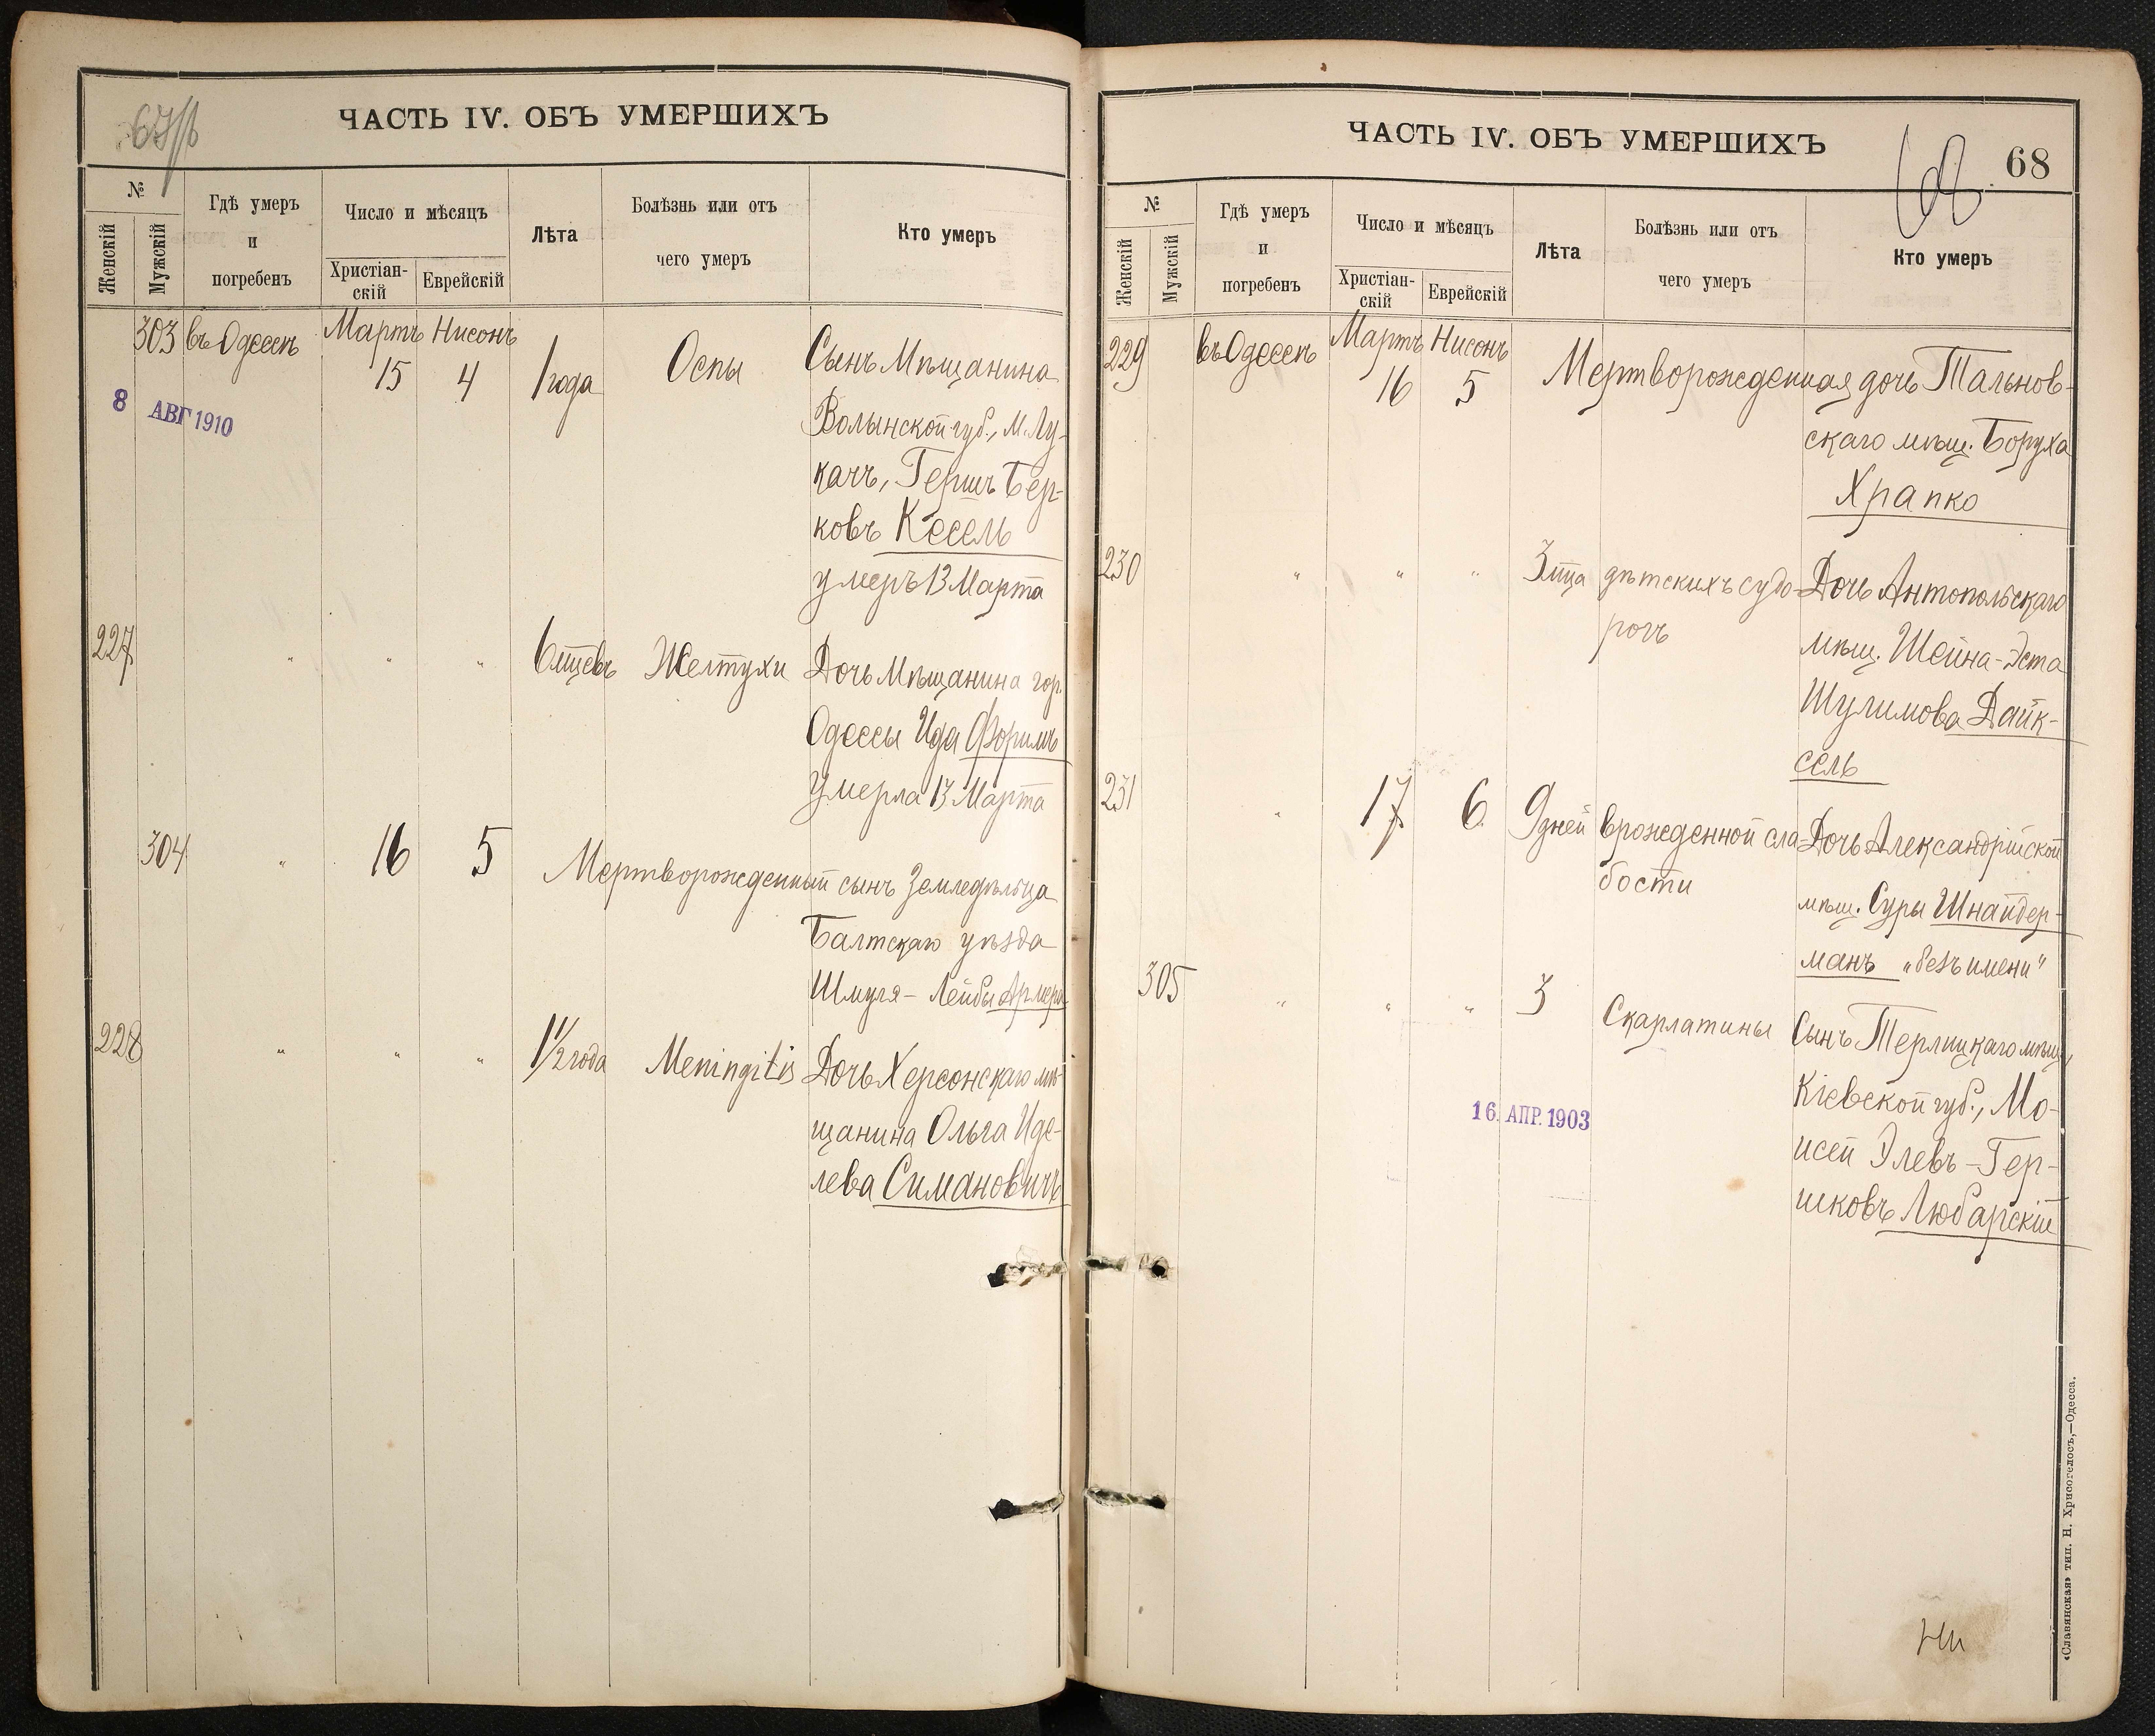 ЧАСТЬ IV. ОБЪ УМЕРШИХЪ
№
Женскій
Мужскій
Гдѣ умеръ
и
погребенъ
Число и мѣсяцъ
Христіан-
скій
Еврейскій
Лѣта
Болѣзнь или отъ
чего умеръ
Кто умеръ
303 въ Одессѣ Мартъ Нисонъ
15 4 1 года Оспы Сынъ Мѣщанина
8 АВГ 1910
Волынской губ., м. Лу-
качъ, Гершъ Бер-
ковъ Кесель
умеръ 13 Марта
227 " " " 6 мцевъ Желтухи Дочь Мѣщанина гор.
Одессы Ида Форимъ
умерла 13 Марта
304 " 16 5 Мертворожденный сынъ Земледѣльца
Балтскаго уѣзда
Шмуля-Лейбы
228 " " " 1 1/2 года Meningitis Дочь Херсонскаго мѣ-
щанина Ольга Иде-
лева Симановичъ
ЧАСТЬ IV. ОБЪ УМЕРШИХЪ
68
68
№
Женскій
Мужскій
Гдѣ умеръ
и
погребенъ
Число и мѣсяцъ
Христіан-
скій
Еврейскій
Лѣта
Болѣзнь или отъ
чего умеръ
Кто умеръ
229 въ Одессѣ Мартъ Нисонъ
16 5 Мертворожденная дочь Тальнов-
скаго мѣщ. Боруха
Храпко
230 " " " 3 мца дѣтскихъ судо- Дочь Антопольскаго
рогъ мѣщ. Шейна-Эста
Шулимова Дайк-
сель
231 " 17 6 9 дней врожденной сла Дочь Александрійской
бости мѣщ. Суры Шнайдер-
манъ „безъ имени“
305 " " " 3 Скарлатины Сынъ Терлицкаго мѣщ.
16. АПР. 1903
Кіевской губ., Мо-
исей Элевъ-Гер-
шковъ Любарскій
«Славянская» тип. Н. Хрисогелосъ,—Одесса.